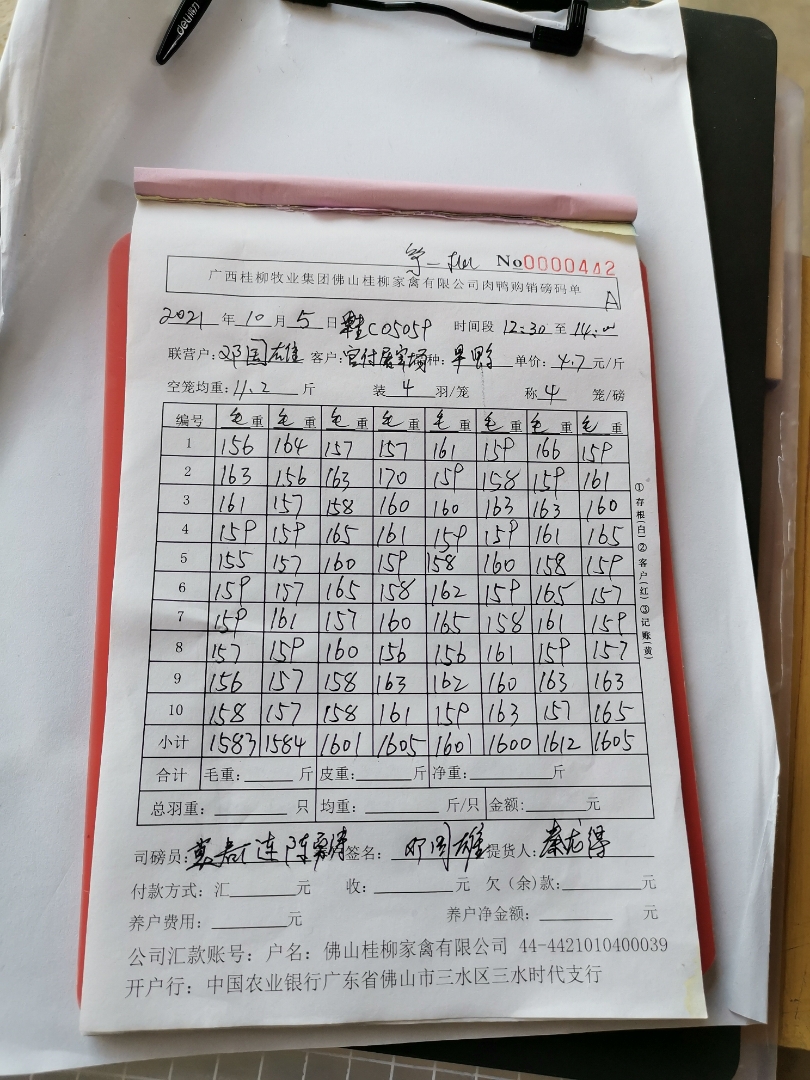 deli 得力
No0000442
广西桂柳牧业集团佛山桂柳家禽有限公司肉鸭购销磅码单
A
2021 年 10 月 5 日 C0505P 时间段 12:30 至 14:00
联营户: 邓国雄 客户: 种: 单价: 4.7 元/斤
空笼均重: 11.2 斤 装 4 羽/笼 称 4 笼/磅
编号 毛重 毛重 毛重 毛重 毛重 毛重 毛重 毛重
1 156 164 157 157 161 159 166 159
2 163 156 163 170 159 158 159 161
3 161 157 158 160 160 163 163 160
4 159 159 165 161 159 159 161 165
5 155 157 160 159 158 160 158 159
6 159 157 165 158 162 159 165 157
7 159 161 157 160 165 158 161 159
8 157 159 160 156 156 161 159 157
9 156 157 158 163 162 160 163 163
10 158 157 158 161 159 163 157 165
小计 1583 1584 1601 1605 1601 1600 1612 1605
合计 毛重: 斤 皮重: 斤 净重: 斤
总羽重: 只 均重: 斤/只 金额: 元
司磅员: 签名: 邓国雄 提货人: 秦龙得
付款方式: 汇 元 收: 元 欠(余)款: 元
养户费用: 元 养户净金额: 元
公司汇款账号: 户名: 佛山桂柳家禽有限公司 44-4421010400039
开户行: 中国农业银行广东省佛山市三水区三水时代支行
①存根(白)②客户(红)③记账(黄)